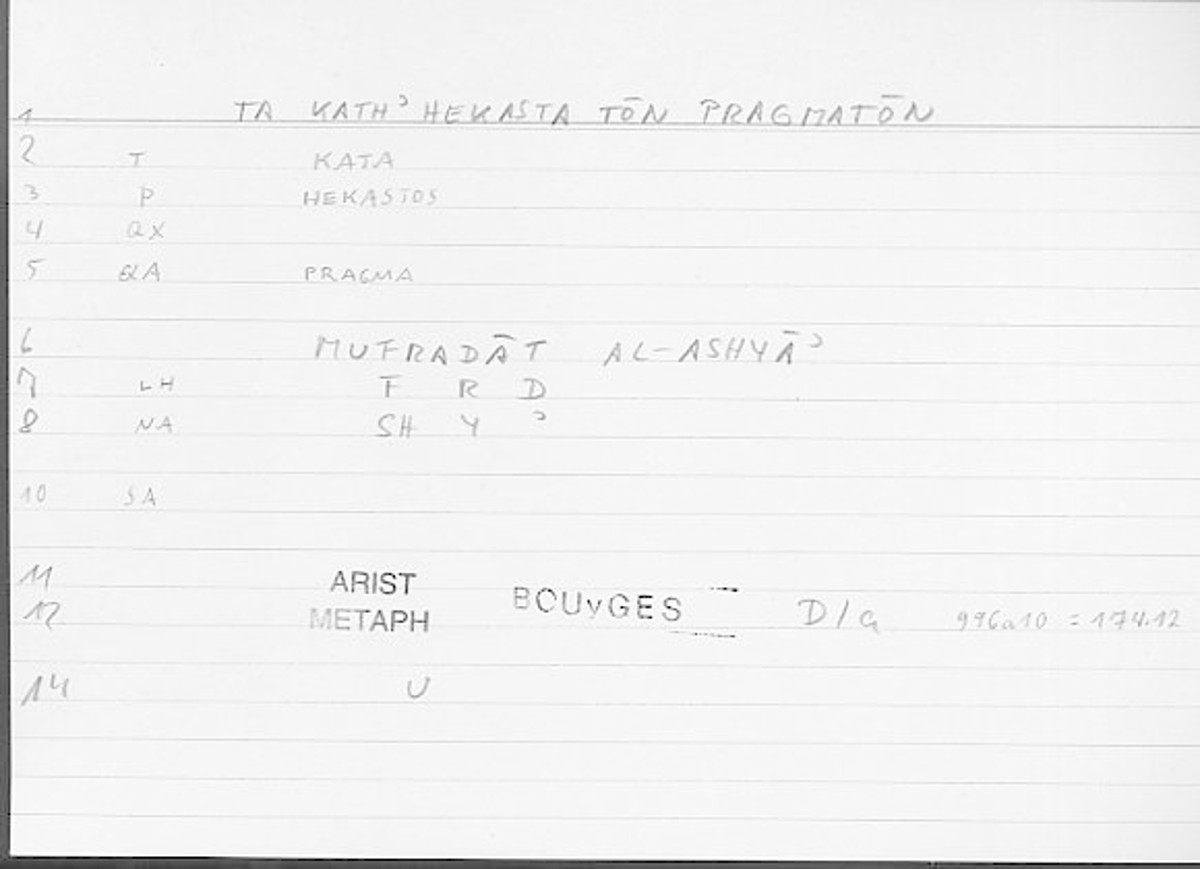 1 TA KATHʾ HEKASTA TŌN PRAGMATŌN
2 T KATA
3 P HEKASTOS
4 QX
5 QA PRAGMA
6 MUFRADĀT AL-ASHYĀʾ
7 LH F R D
8 NA SH Y ʾ
10 SA
11 ARIST
12 METAPH BOUyGES D/a 996a10 = 174.12
14 U